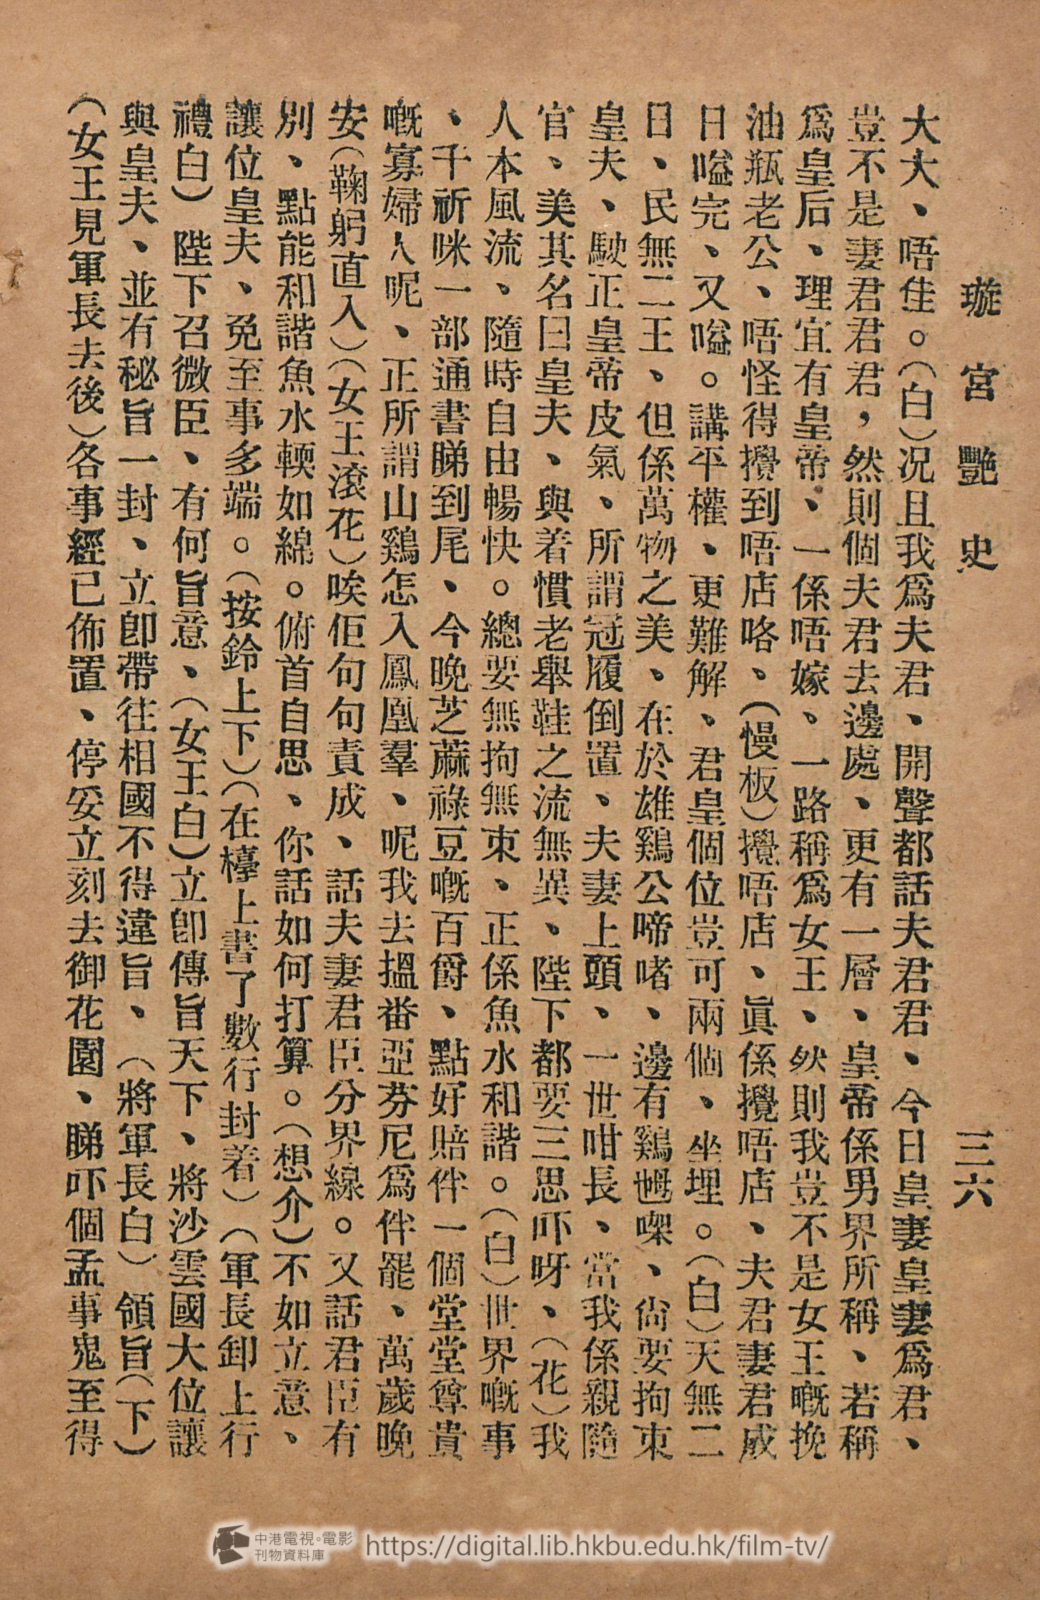 璇宮艷史
三六
大大、唔佳。(白)况且我爲夫君、開聲都話夫君君、今日皇妻皇妻爲君、
豈不是妻君君君，然則個夫君去邊處、更有一層、皇帝係男界所稱、若稱
爲皇后、理宜有皇帝、一係唔嫁、一路稱爲女王、然則我豈不是女王嘅挽
油瓶老公、唔怪得攪到唔店咯、(慢板)攪唔店、眞係攪唔店、夫君妻君成
日嗌完、又嗌。講平權、更難解、君皇個位豈可兩個、坐埋。(白)天無二
日、民無二王、但係萬物之美、在於雄鷄公啼啫、邊有鷄乸㗎、尙要拘束
皇夫、駛正皇帝皮氣、所謂冠履倒置、夫妻上頭、一世咁長、當我係親隨
官、美其名曰皇夫、與着慣老舉鞋之流無異、陛下都要三思吓呀、(花)我
人本風流、隨時自由暢快。總要無拘無束、正係魚水和諧。(白)世界嘅事
、千祈咪一部通書睇到尾、今晚芝蔴祿豆嘅百爵、點好賠伴一個堂堂尊貴
嘅寡婦人呢、正所謂山鷄怎入鳳凰羣、呢我去搵番亞芬尼爲伴罷、萬歲晚
安(鞠躬直入)(女王滾花)唉佢句句責成、話夫妻君臣分界線。又話君臣有
別、點能和諧魚水輭如綿。俯首自思、你話如何打算。(想介)不如立意、
讓位皇夫、免至事多端。(按鈴上下)(在檯上書了數行封着)(軍長卸上行
禮白)陛下召微臣、有何旨意、(女王白)立卽傳旨天下、將沙雲國大位讓
與皇夫、並有秘旨一封、立卽帶往相國不得違旨、(將軍長白)領旨(下)
(女王見軍長去後)各事經已佈置、停妥立刻去御花園、睇吓個孟事鬼至得
中港電視·電影
刊物資料庫
https://digital.lib.hkbu.edu.hk/film-tv/